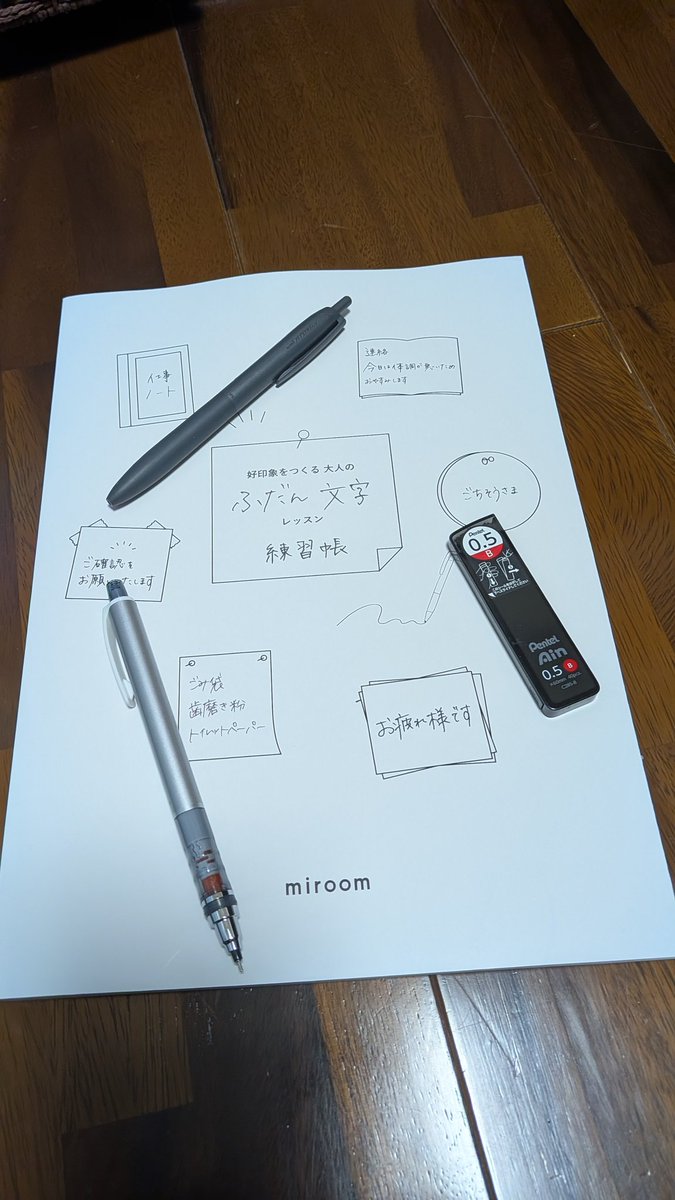 仕事
ノート
連絡
今日は体調が悪いため
お休みします
好印象をつくる 大人の
ふだん 文字
レッスン
練習帳
ごちそうさま
ご確認を
お願いいたします
Pentel
0.5
B
Pentel
Ain
0.5 B
ゴミ袋
歯磨き粉
トイレットペーパー
お疲れ様です
miroom